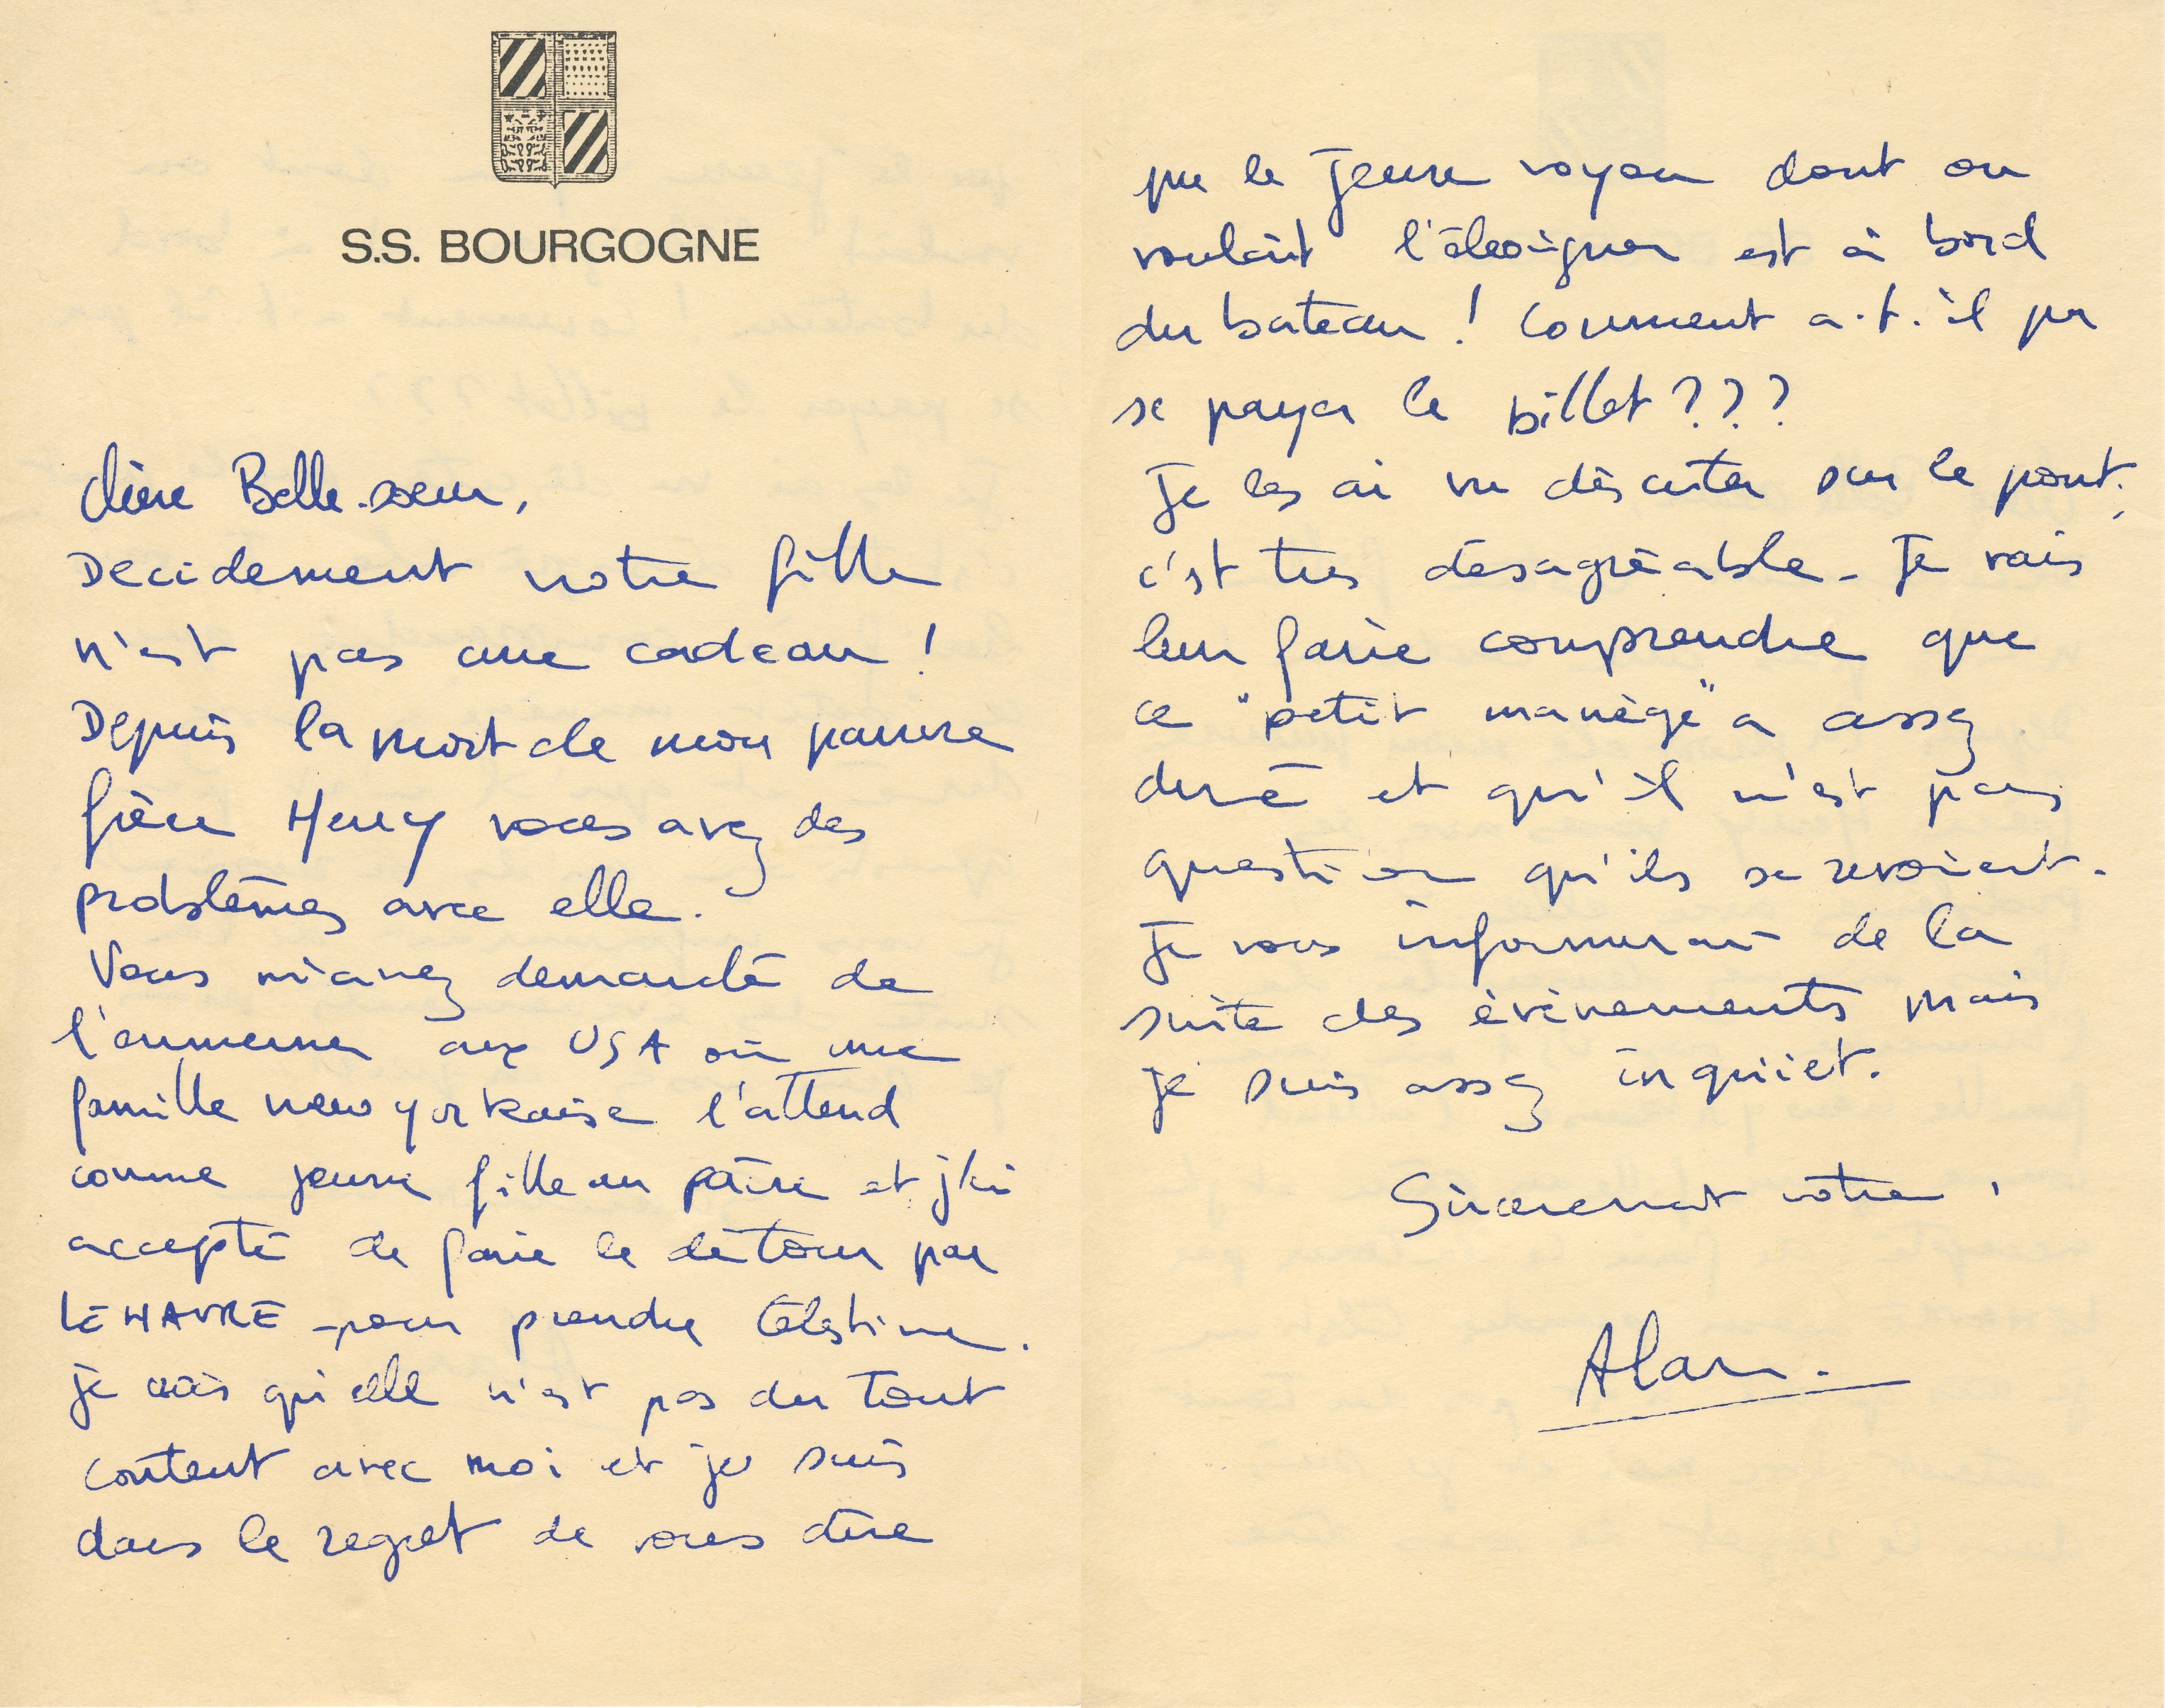 S.S. BOURGOGNE
Chère Belle-soeur,
Decidement votre fille
n'est pas une cadeau !
Depuis la mort de mon pauvre
frère Henry vous avez des
problèmes avec elle.
Vous m'avez demandé de
l'emmener aux USA où une
famille new yorkaise l'attend
comme jeune fille au paire et j'ai
accepté de faire le détour par
LE HAVRE pour prendre Célestine.
je vois qu'elle n'est pas du tout
content avec moi et je suis
dans le regret de vous dire
que le jeune voyou dont on
voulait l'éloigner est à bord
du bateau ! Comment a.t.il pu
se payer le billet ???
Je les ai vu discuter sur le pont.
c'est tres désagréable - Je vais
leur faire comprendre que
ce "petit manège" a assez
duré et qu'il n'est pas
question qu'ils se revoient.
Je vous informerai de la
suite des évènements mais
je suis assez inquiet.
Sincerement votre,
Alan.